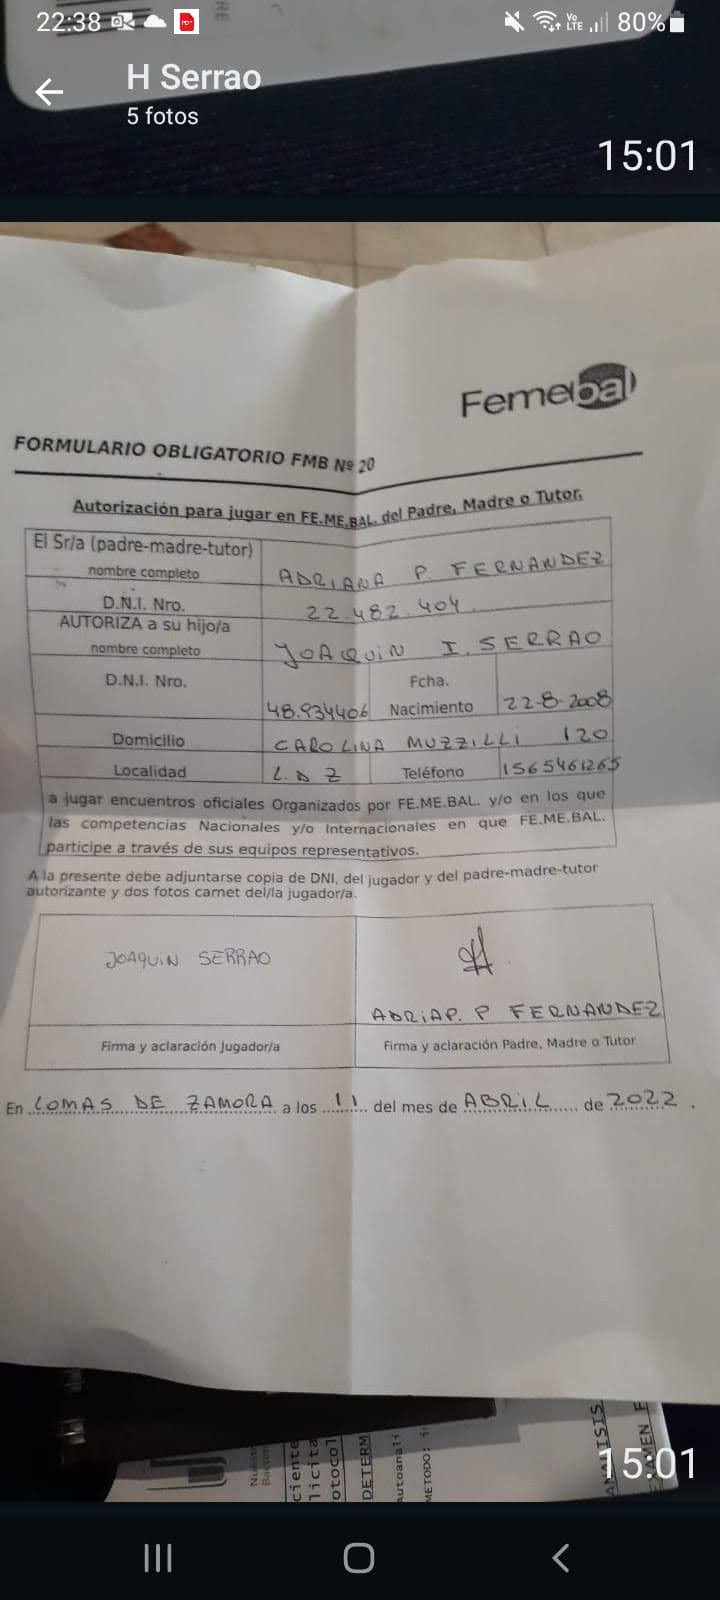 22:38
80%
H Serrao
5 fotos
15:01
Femebal
FORMULARIO OBLIGATORIO FMB Nº 20
Autorización para jugar en FE.ME.BAL. del Padre, Madre o Tutor.
El Sr/a (padre-madre-tutor)
nombre completo ADRIANA P. FERNANDEZ
D.N.I. Nro. 22.482.404
AUTORIZA a su hijo/a
nombre completo JOAQUIN I. SERRAO
D.N.I. Nro. 48.934406 Fcha. Nacimiento 22-8-2008
Domicilio CAROLINA MUZZILLI 120
Localidad L.D Z Teléfono 1565461265
a jugar encuentros oficiales Organizados por FE.ME.BAL. y/o en los que
las competencias Nacionales y/o Internacionales en que FE.ME.BAL.
participe a través de sus equipos representativos.
A la presente debe adjuntarse copia de DNI, del jugador y del padre-madre-tutor
autorizante y dos fotos carnet del/la jugador/a.
JOAQUIN SERRAO
ADRIAP. P FERNANDEZ
Firma y aclaración Jugador/a Firma y aclaración Padre, Madre o Tutor
En LOMAS DE ZAMORA a los 11 del mes de ABRIL de 2022.
ciente
licita
otocol
DETERM
Autoanali
METODO:
ANALISIS
15:01